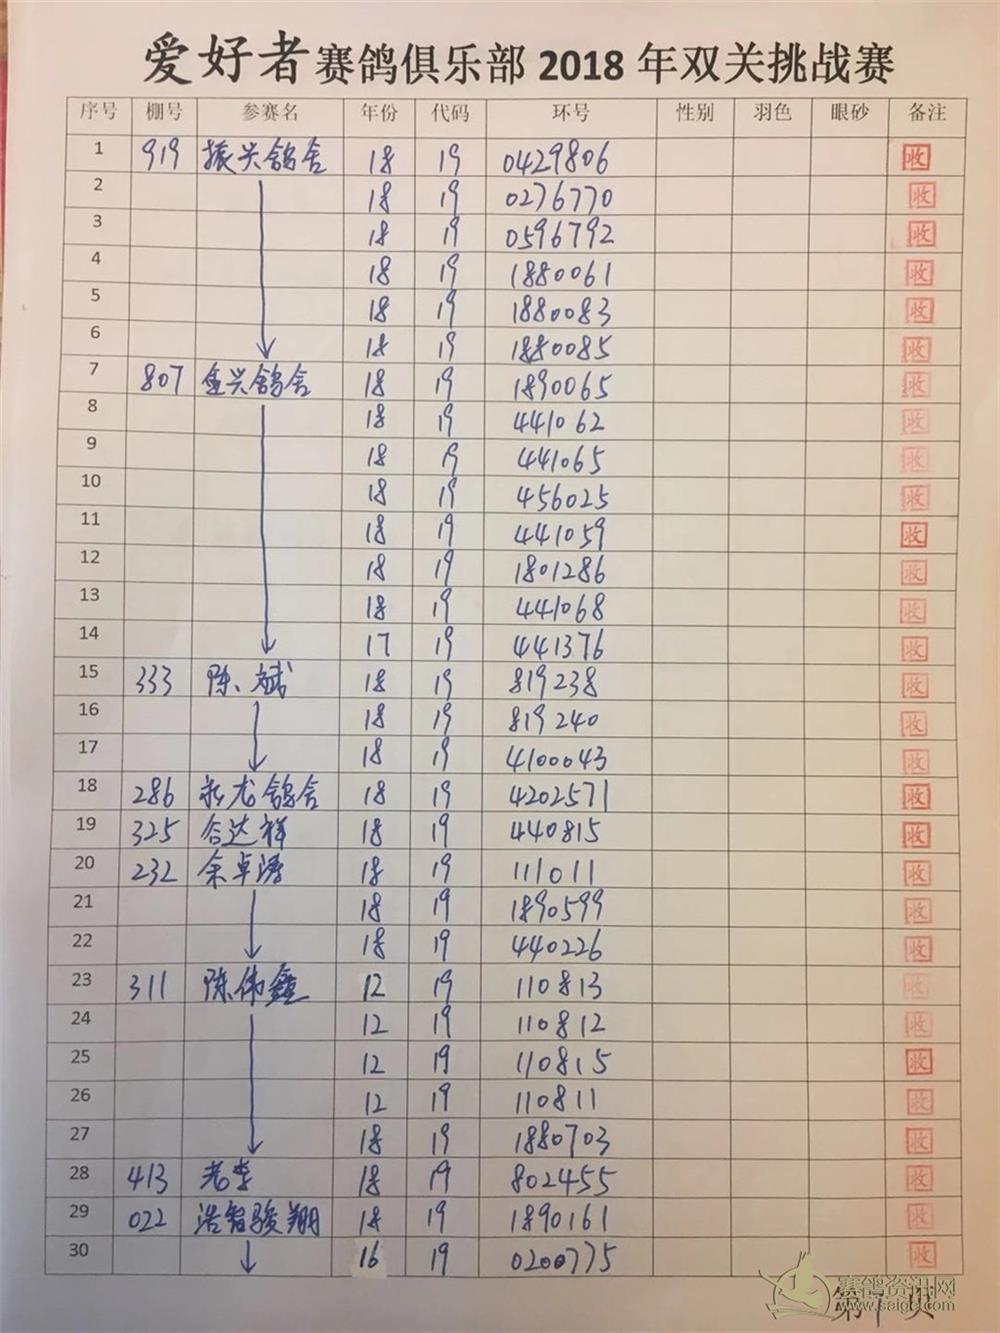 爱好者赛鸽俱乐部2018年双关挑战赛
序号 棚号 参赛名 年份 代码 环号 性别 羽色 眼砂 备注
1 919 振兴鸽舍 18 19 0429806 收
2 18 19 0276770 收
3 18 19 0596792 收
4 18 19 1880061 收
5 18 19 1880083 收
6 18 19 1880085 收
7 807 金兴鸽舍 18 19 1890065 收
8 18 19 441062 收
9 18 19 441065 收
10 18 19 456025 收
11 18 19 441059 收
12 18 19 1801286 收
13 18 19 441068 收
14 17 19 441376 收
15 333 陈斌 18 19 819238 收
16 18 19 819240 收
17 18 19 4100043 收
18 286 龙鸽舍 18 19 4202571 收
19 325 合达祥 18 19 440815 收
20 232 余卓涛 18 19 111011 收
21 18 19 1890599 收
22 18 19 440226 收
23 311 陈伟鑫 12 19 110813 收
24 12 19 110812 收
25 12 19 110815 收
26 12 19 110811 收
27 18 19 1880703 收
28 413 老李 18 19 802455 收
29 022 浩智骏翔 18 19 1890161 收
30 16 19 0200775 收
赛鸽资讯网
www.saige.com
第1页